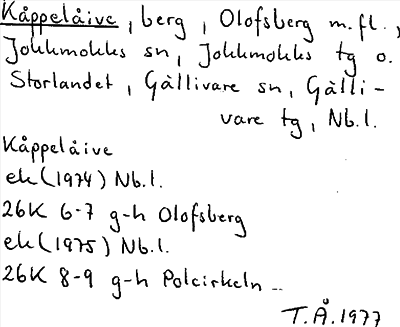 Kåppelåive, berg, Olofsberg m.fl.,
Jokkmokks sn, Jokkmokks tg o.
Storlandet, Gällivare sn, Gälli-
vare tg, Nb.l.
Kåppelåive
ek (1974) Nb.l.
26K 6-7 g-h Olofsberg
ek (1975) Nb.l.
26K 8-9 g-h Polcirkeln
T.Å. 1977